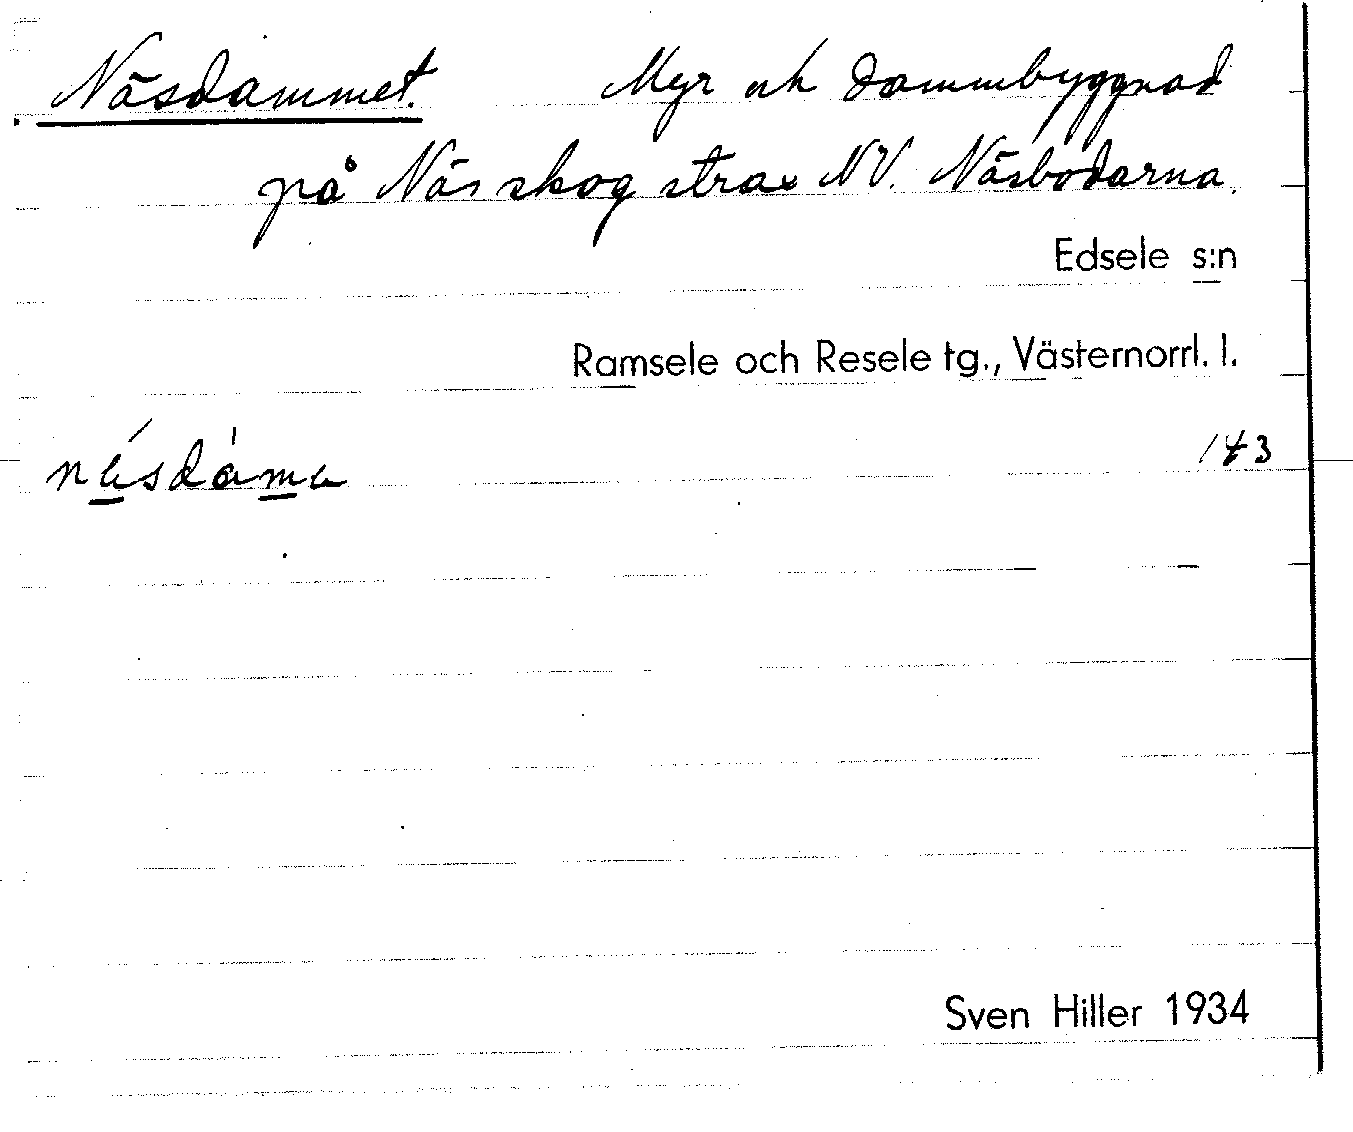 Näsdammet. Myr och dammbyggnad
på Näs skog strax NV. Näsbodarna.
Edsele s:n
Ramsele och Resele tg., Västernorrl. l.
143
Sven Hiller 1934